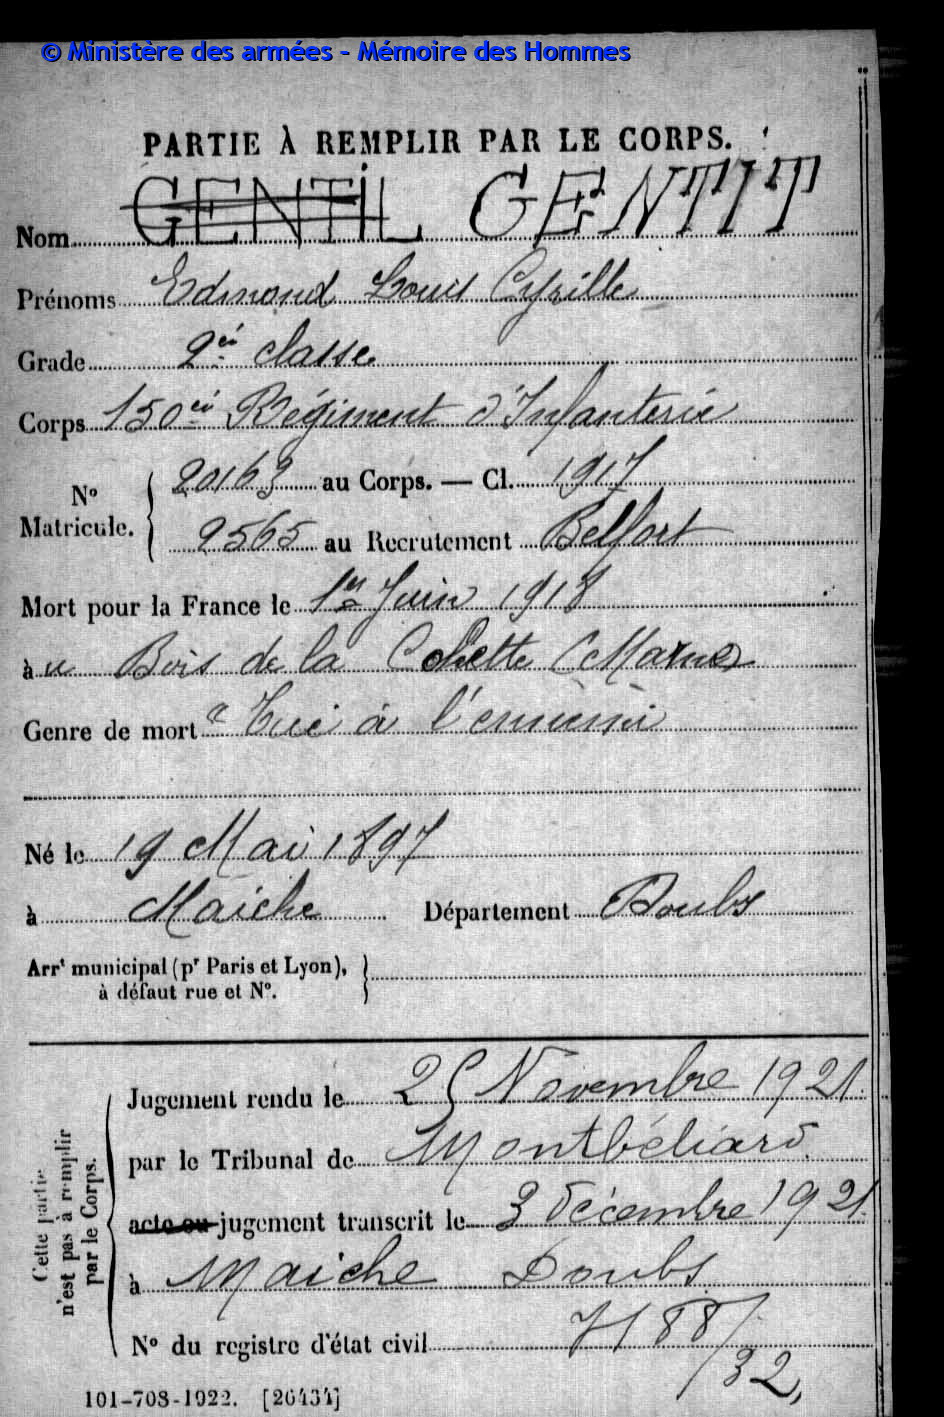 © Ministère des armées - Mémoire des Hommes
PARTIE À REMPLIR PAR LE CORPS.
Nom GENTIL GENTIT
Prénoms Edmond Louis Cyrille
Grade 2e classe
Corps 150e Régiment d'Infanterie
N° Matricule. { 20163 au Corps. — Cl. 1917
2565 au Recrutement Belfort
Mort pour la France le 1er Juin 1918
à u Bois de la Cohette (Marne)
Genre de mort Tué à l'ennemi
Né le 19 Mai 1897
à Maiche Département Doubs
Arrt municipal (pr Paris et Lyon),
à défaut rue et N°.
Cette partie
n'est pas à remplir
par le Corps.
Jugement rendu le 25 Novembre 1921.
par le Tribunal de Montbéliard.
acte ou jugement transcrit le 3 décembre 1921
à Maiche Doubs
N° du registre d'état civil 7188/
/32,
101-708-1922. [26434]